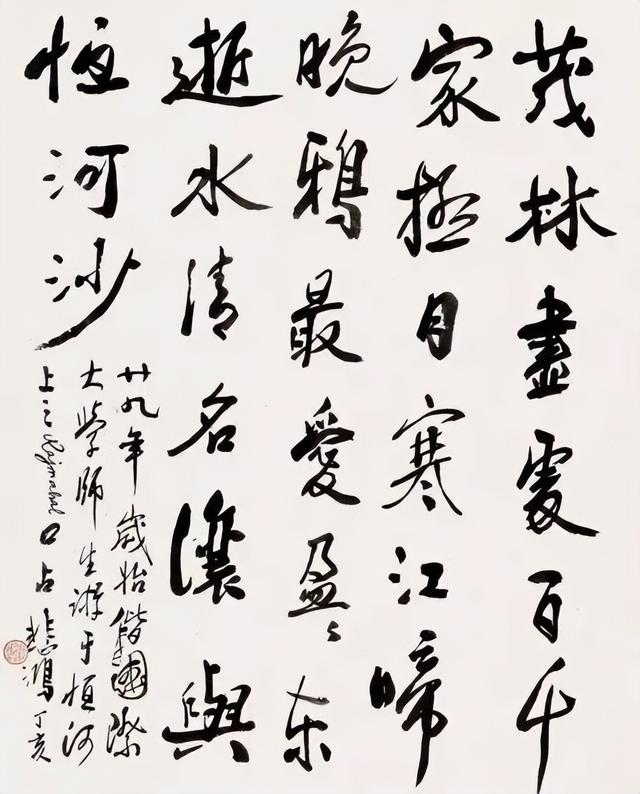 茂林盡處百千
家極目寒江啼
晚鴉最愛盈々東
逝水清名讓與
恆河沙
廿九年歲始偕國際
大學師生游于恒河
上之Rajmahal口占
悲鴻丁亥